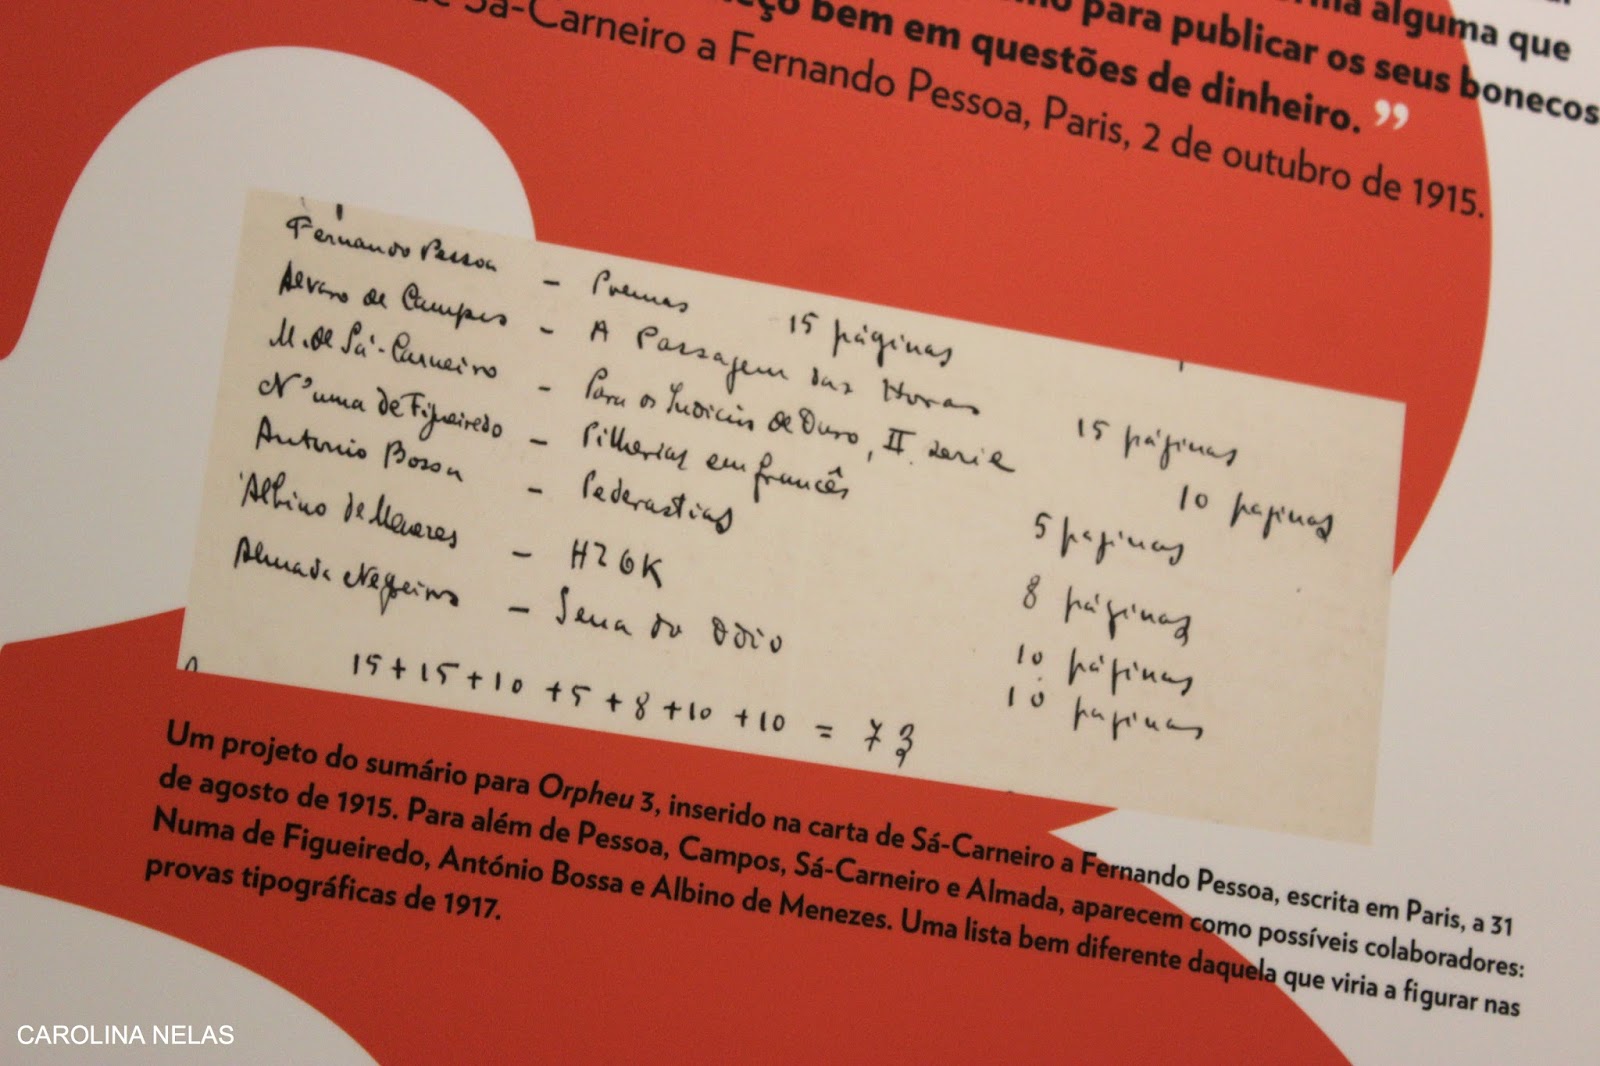 para publicar os seus bonecos
alguma que
bem em questões de dinheiro. ”
de Sá-Carneiro a Fernando Pessoa, Paris, 2 de outubro de 1915.
Fernando Pessoa – Poemas 15 páginas
Alvaro de Campos – A Passagem das Horas 15 páginas
M. de Sá-Carneiro – Para os Indicios de Ouro, II. serie 10 paginas
N'uma de Figueiredo – Pilherias em francês 5 paginas
Antonio Bossa – Pederastias 8 páginas
Albino de Menezes – H2OK 10 páginas
Almada Negreiros – Sena do Odio 10 paginas
15 + 15 + 10 + 5 + 8 + 10 + 10 = 73
Um projeto do sumário para Orpheu 3, inserido na carta de Sá-Carneiro a Fernando Pessoa, escrita em Paris, a 31
de agosto de 1915. Para além de Pessoa, Campos, Sá-Carneiro e Almada, aparecem como possíveis colaboradores:
Numa de Figueiredo, António Bossa e Albino de Menezes. Uma lista bem diferente daquela que viria a figurar nas
provas tipográficas de 1917.
CAROLINA NELAS